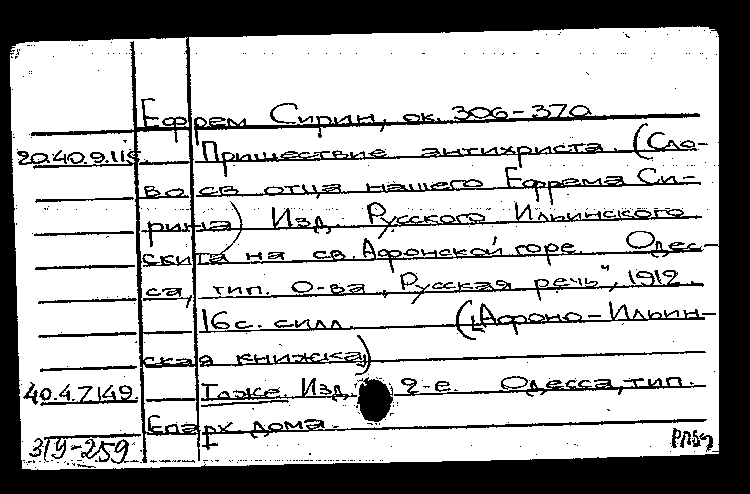 Ефрем Сирин, ок. 306-370
20.40.9.115. Пришествие антихриста. (Сло-
во св отца нашего Ефрема Си-
рина) Изд. Русского Ильинского
скита на св. Афонской горе. Одес-
са, тип. О-ва „Русская речь", 1912.
16 с. силл. („Афоно-Ильин-
ская книжка)
40.4.7.149. Тоже. Изд. 2-е. Одесса, тип.
Епарх. дома.
319-259